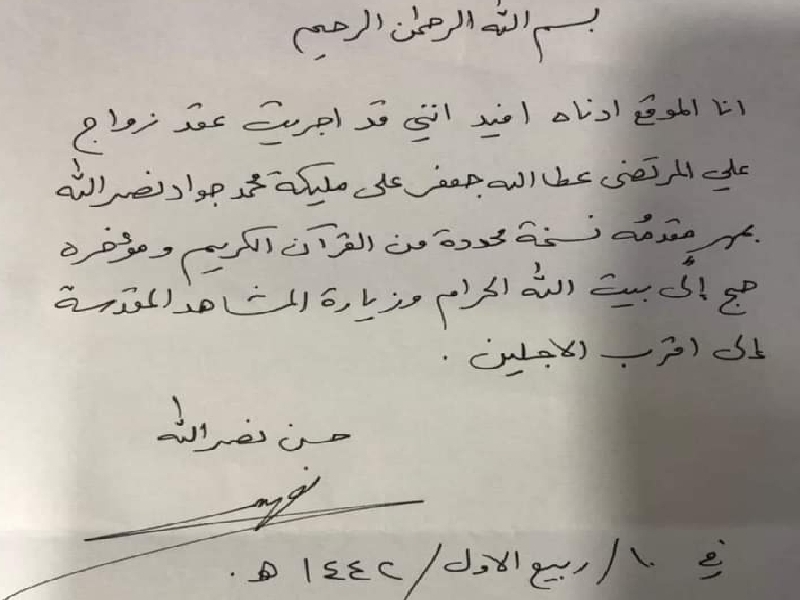 بسم الله الرحمن الرحيم
انا الموقع ادناه افيد انني قد اجريت عقد زواج
علي المرتضى عطا الله جعفر على مليكة محمد جواد نصر الله
بمهر مقدمُه نسخة محددة من القرآن الكريم ومؤخره
حج إلى بيت الله الحرام وزيارة المشاهد المقدسة
إلى اقرب الاجلين .
حسن نصر الله
في ١٠/ ربيع الاول / ١٤٤٢ هـ .